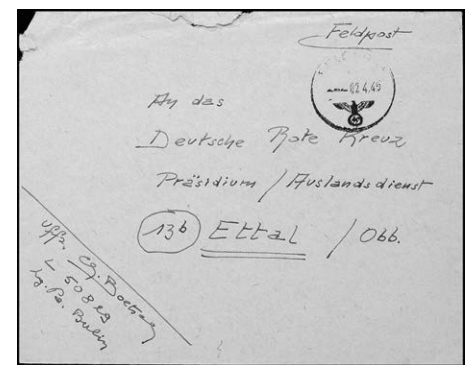 Feldpost
02.4.45
An das
Deutsche Rote Kreuz
Präsidium / Auslandsdienst
13b Ettal / Obb.
Uffz.
L 50819
Lg. Pa. Berlin